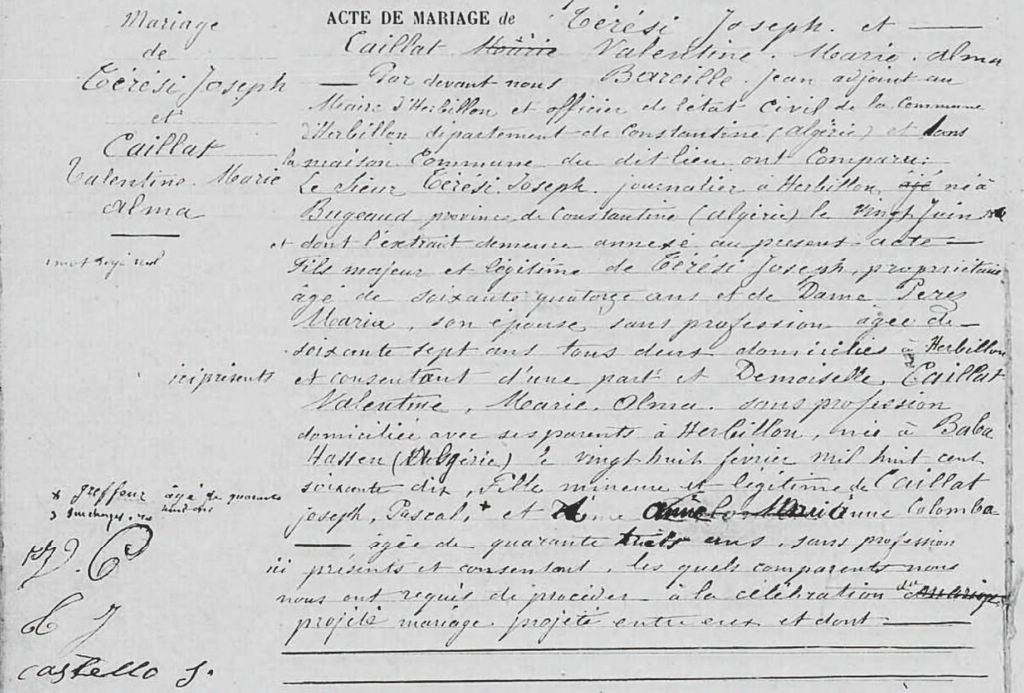 Mariage
de
Térési Joseph
et
Caillat
Valentine. Marie
alma
ACTE DE MARIAGE de Térési Joseph. et
Caillat Marie Valentine. Marie. alma
Par devant nous Bareille. Jean adjoint au
Maire d'Herbillon et officier de l'état civil de la Commune
d'Herbillon département de Constantine (algérie) et dans
la maison Commune du dit lieu ont Comparu:
Le Sieur Térési Joseph. journalier à Herbillon, âgé né à
Bugeaud province de Constantine (algérie) le vingt Juin
et dont l'extrait demeure annexé au présent acte
Fils majeur et légitime de Térési Joseph, propriétaire
âgé de soixante quatorze ans et de Dame Perez
Maria, son épouse sans profession âgée de
soixante sept ans tous deux domiciliés à Herbillon
ici présents et consentant d'une part et Demoiselle, Caillat
Valentine, Marie, Alma. sans profession
domiciliée avec ses parents à Herbillon, née à Baba
Hassen (Algérie) le vingt huit fevrier mil huit cent
soixante dix, Fille mineure et légitime de Caillat
joseph, Pascal, + et anne Colomba
âgée de quarante trois ans, sans profession
ici présents et consentant, les quels comparents nous
nous ont requis de procéder à la célébration du mariage
projeté mariage projeté entre eux et dont
greffeur âgé de quarante
castello J.